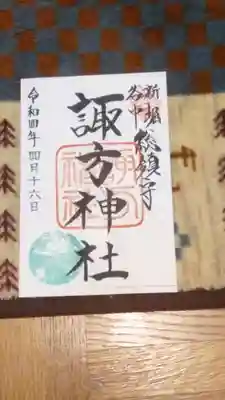 新堀
谷中
総鎮守
諏方神社
令和四年四月十六日